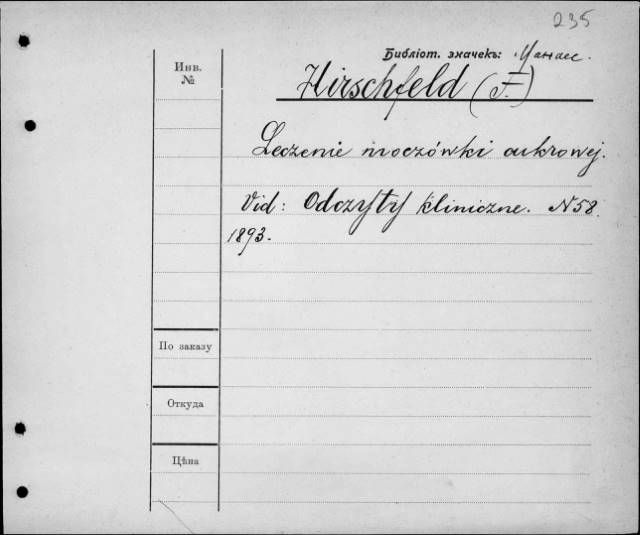 235
Библіот. значекъ:
Инв.
№
Hirschfeld (F.)
Leczenie moczówki cukrowej.
Vid: Odczyty kliniczne. N 58.
1893.
По заказу
Откуда
Цѣна